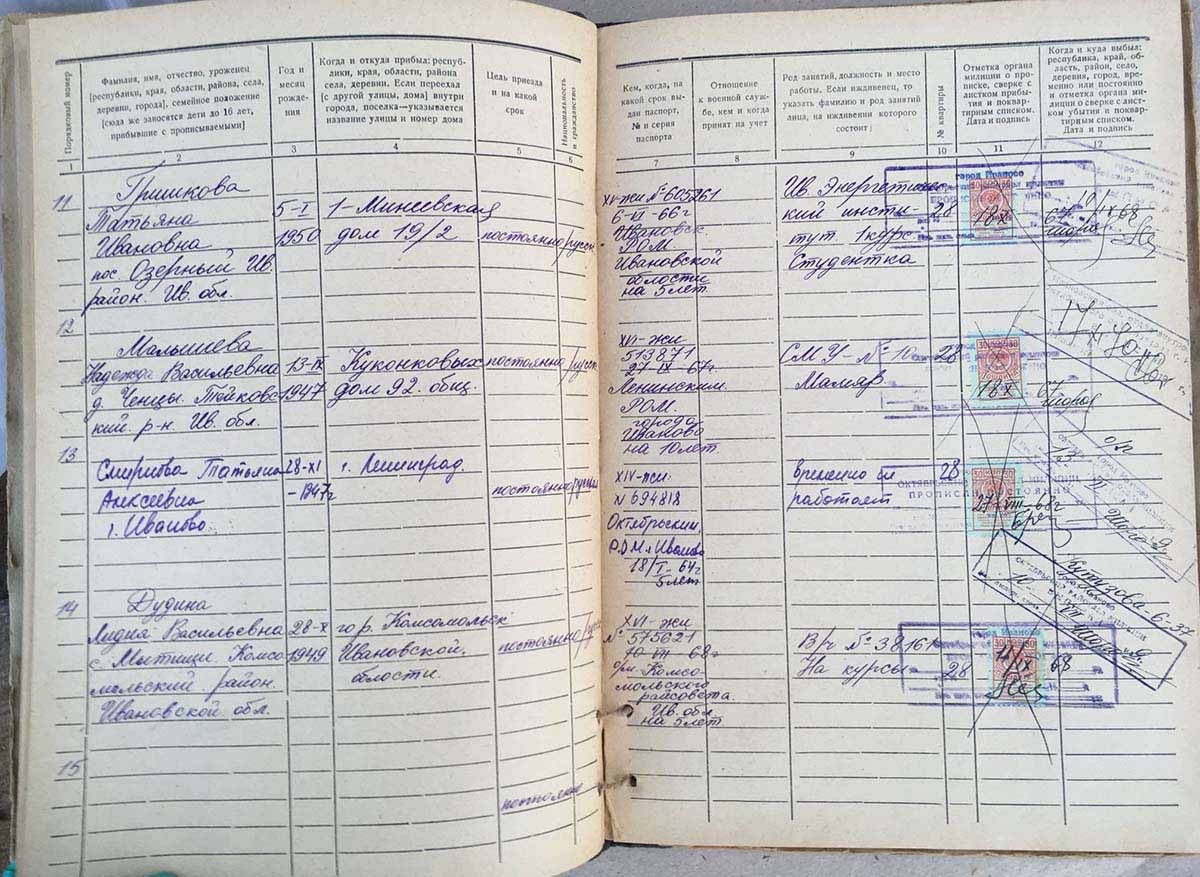 Порядковый номер
Фамилия, имя, отчество, уроженец
[республики, края, области, района, села,
деревни, города], семейное положение
[сюда же заносятся дети до 16 лет,
прибывшие с прописываемыми]
Год и
месяц
рожде-
ния
Когда и откуда прибыл: респуб-
лики, края, области, района
села, деревни. Если переехал
[с другой улицы, дома] внутри
города, поселка—указывается
название улицы и номер дома
Цель приезда
и на какой
срок
Национальность
и гражданство
1
2
3
4
5
6
11
Гришкова
Татьяна
Ивановна
пос. Озерный Ив.
район. Ив. обл.
5-I
1950
1-Минеевская
дом 19/2
постоянно
русск
12
Малышева
Надежда Васильевна
д. Ченцы. Тейковс
кий. р-н. Ив. обл.
13-IX
1947
Куконковых
дом 92. общ.
постоянно
русск
13
Смирнова Татьяна
Алексеевна
г. Иваново.
28-XI
-1947г
г. Ленинград.
постоянно
русская
14
Дудина
Лидия Васильевна
с. Мытищи. Комсо
мольский район.
Ивановской обл.
28-X
1949
гор. Комсомольск
Ивановской.
области.
постоянно
русск
15
постоянно
Кем, когда, на
какой срок вы-
дан паспорт,
№ и серия
паспорта
Отношение
к военной служ-
бе, кем и когда
принят на учет
Род занятий, должность и место
работы. Если иждивенец, то
указать фамилию и род занятий
лица, на иждивении которого
состоит;
№ квартиры
Отметка органа
милиции о про-
писке, сверке с
листком прибы-
тия и поквар-
тирным списком.
Дата и подпись
Когда и куда выбыл:
республика, край, об-
ласть, район, село,
деревня, город, вре-
менно или постоянно
и отметка органа ми-
лиции о сверке с лист-
ком убытия и поквар-
тирным списком.
Дата и подпись
7
8
9
10
11
12
XV-жи №605261
6-VI-66г
Ивановск
РОМ.
Ивановской
области
на 5 лет.
Ив. Энергетичес
кий инсти-
тут 1 курс.
Студентка
28
город Иваново
30
30
18 X
67
10/IX 68
XVI-жи
513871
27-IX-67г.
Ленинским
РОМ.
города
Иваново
на 10 лет
СМУ-№10
Маляр.
28
30
30
18 X
67
17
XIV-жи
N 694818
Октябрьским
РОМ г Иваново
18/I-64г
5 лет
Временно не
работает
28
ПРОПИСАН ПОСТОЯННО
27-VIII-68г
Кутузова-6-37
10
VII
XVI-жи
№ 575621
10-VII-68г
Комсо
мольского
райсовета.
Ив. обл
на 5 лет
Вр №38161
На курсы
28
город Иваново
30
30
11/IX 68